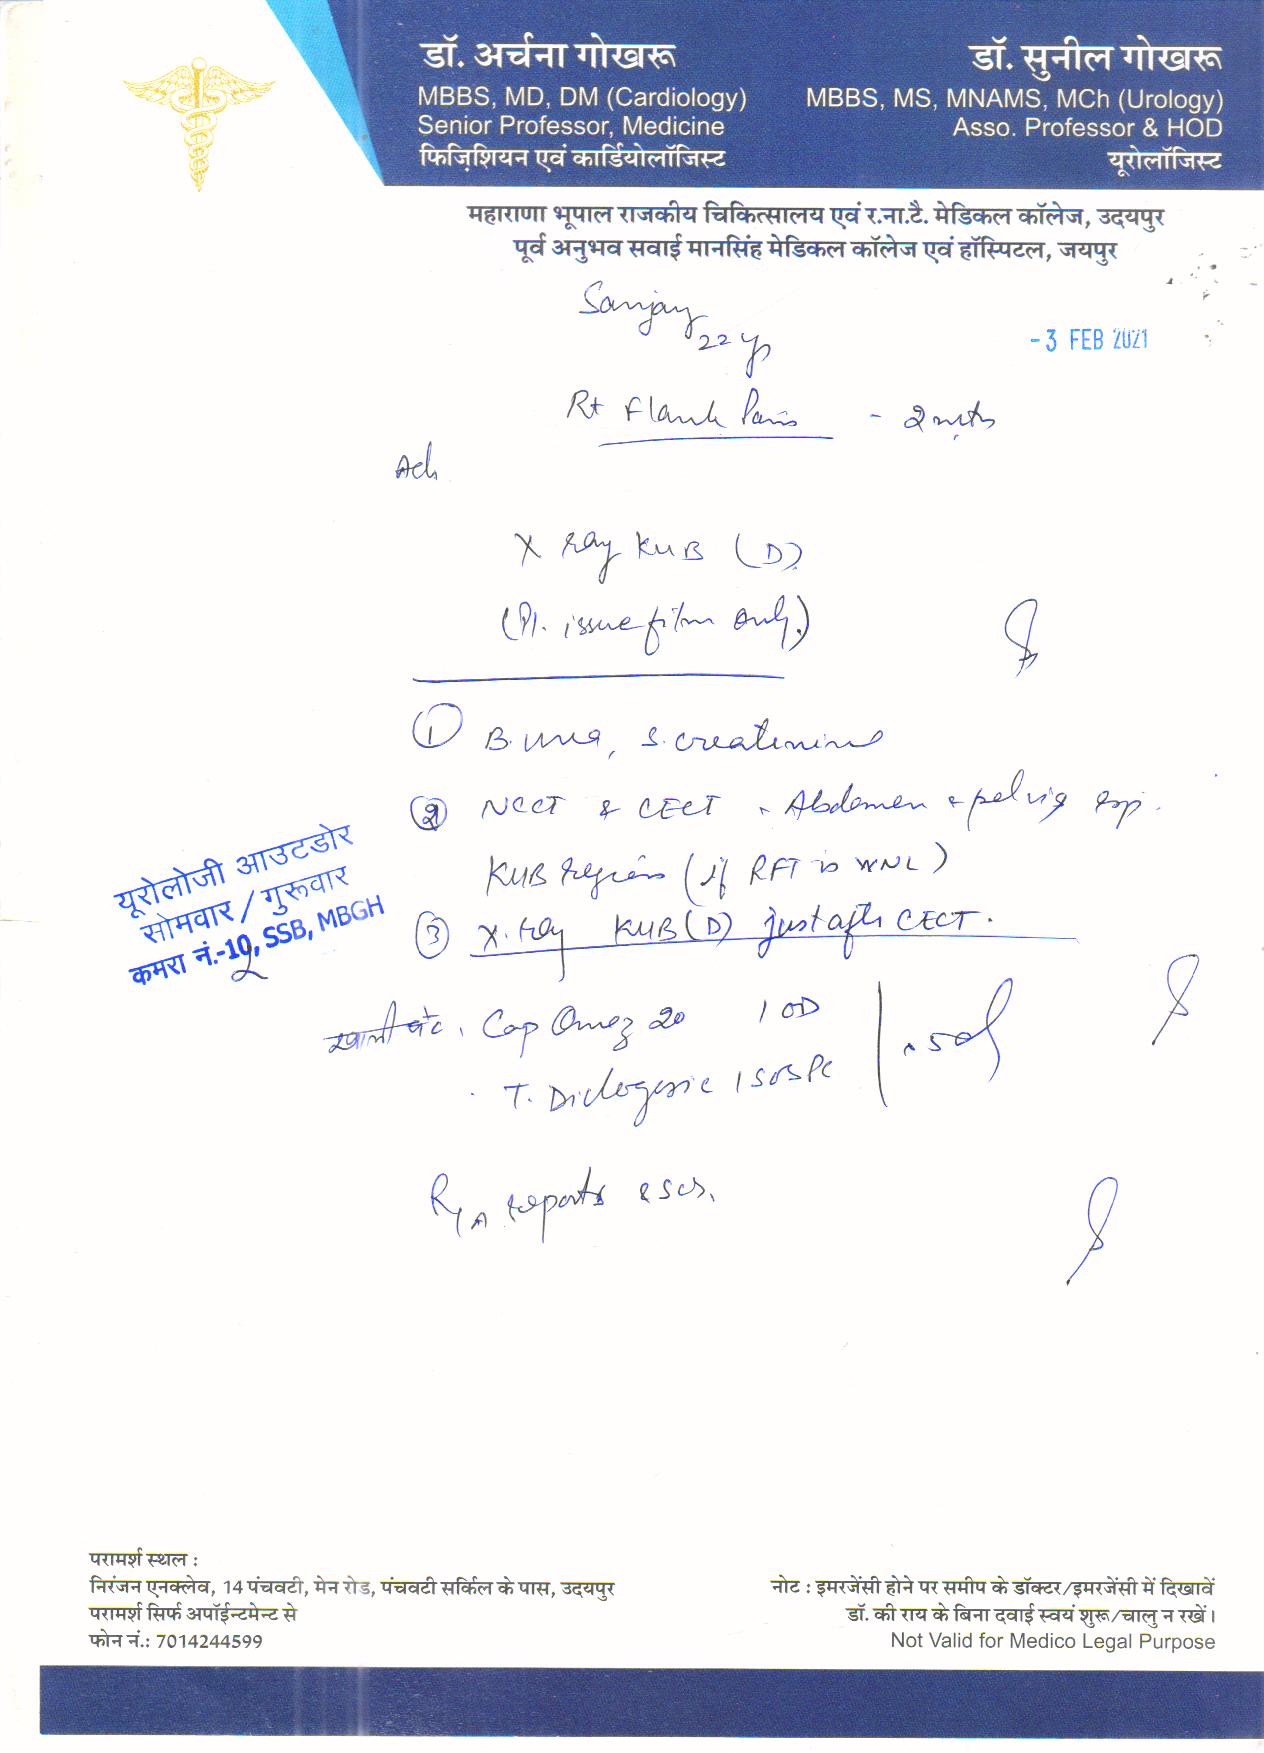 डॉ. अर्चना गोखरू
MBBS, MD, DM (Cardiology)
Senior Professor, Medicine
फिज़िशियन एवं कार्डियोलॉजिस्ट
डॉ. सुनील गोखरू
MBBS, MS, MNAMS, MCh (Urology)
Asso. Professor & HOD
यूरोलॉजिस्ट
महाराणा भूपाल राजकीय चिकित्सालय एवं र.ना.टै. मेडिकल कॉलेज, उदयपुर
पूर्व अनुभव सवाई मानसिंह मेडिकल कॉलेज एवं हॉस्पिटल, जयपुर
Sanjay
22 yr
-3 FEB 2021
Rt Flank Pain - 2 mths
Adv
X ray KUB (D)
(Pl. issue film only.)
① B. urea, S. creatinine
② NCCT & CECT - Abdomen & pelvis esp.
KUB region (if RFT is WNL)
③ X. ray KUB (D) just after CECT.
यूरोलोजी आउटडोर
सोमवार / गुरूवार
कमरा नं.-10, SSB, MBGH
2
खाली पेट . Cap Omez 20 1 OD
. T. Diclogesic 1 SOS PC
x 5 d
R/A reports & SOS.
परामर्श स्थल :
निरंजन एनक्लेव, 14 पंचवटी, मेन रोड, पंचवटी सर्किल के पास, उदयपुर
परामर्श सिर्फ अपॉईन्टमेन्ट से
फोन नं.: 7014244599
नोट : इमरजेंसी होने पर समीप के डॉक्टर/इमरजेंसी में दिखावें
डॉ. की राय के बिना दवाई स्वयं शुरू/चालु न रखें।
Not Valid for Medico Legal Purpose